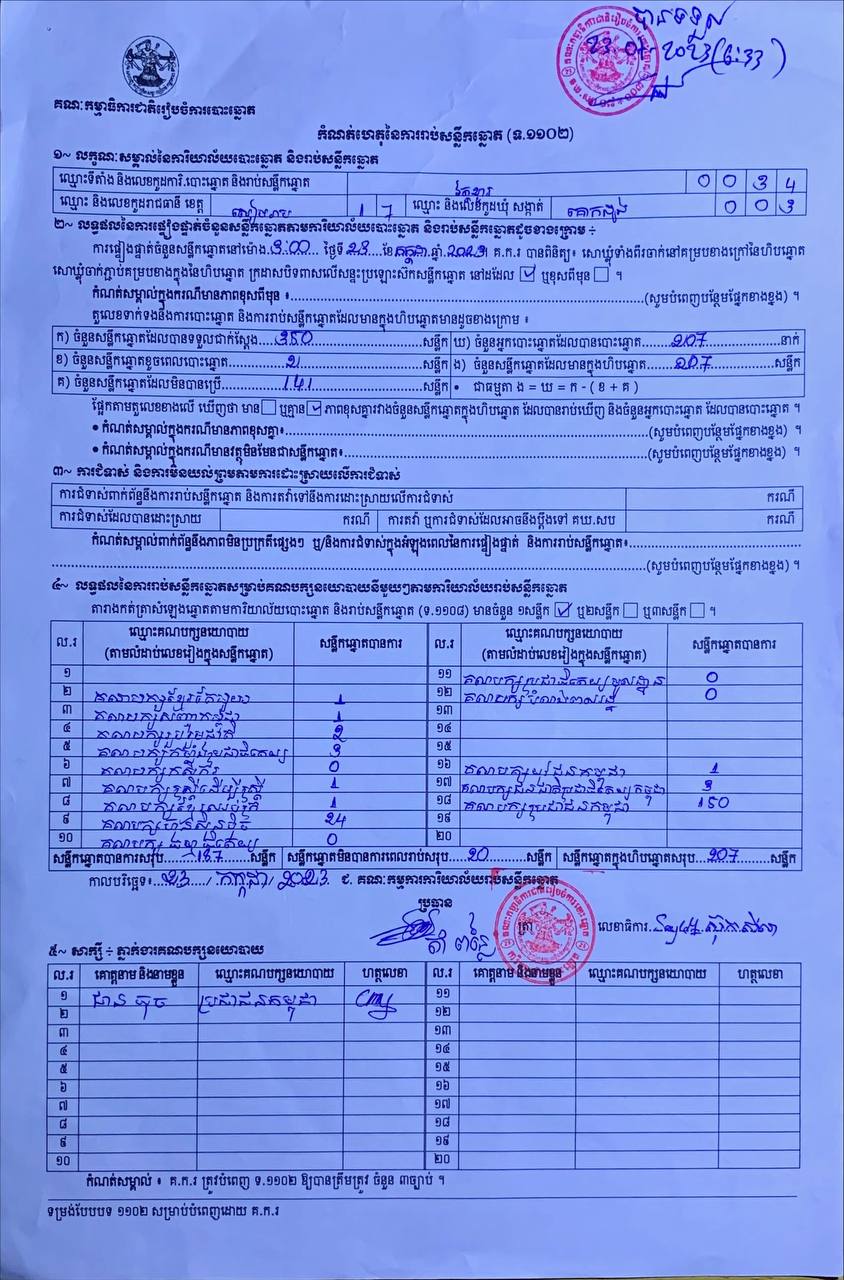 បានទទួល
23.07.2023 (6:33)
គណៈកម្មាធិការជាតិរៀបចំការបោះឆ្នោត
កំណត់ហេតុនៃការរាប់សន្លឹកឆ្នោត (ទ.១១០២)
១~ លក្ខណៈសម្គាល់នៃការិយាល័យបោះឆ្នោត និងរាប់សន្លឹកឆ្នោត
ឈ្មោះទីតាំង និងលេខកូដការិ.បោះឆ្នោត និងរាប់សន្លឹកឆ្នោត 0 0 3 4
ឈ្មោះ និងលេខកូដរាជធានី ខេត្ត សៀមរាប 1 7 ឈ្មោះ និងលេខកូដឃុំ សង្កាត់ គោកដូង 0 0 3
២~ លទ្ធផលនៃការផ្ទៀងផ្ទាត់ចំនួនសន្លឹកឆ្នោតតាមការិយាល័យបោះឆ្នោត និងរាប់សន្លឹកឆ្នោតដូចខាងក្រោម ÷
ការផ្ទៀងផ្ទាត់ចំនួនសន្លឹកឆ្នោតនៅម៉ោង.3:00.... ថ្ងៃទី23....ខែកក្កដា.ឆ្នាំ.2023។ គ.ក.រ បានពិនិត្យ៖ សោឃ្លុំទាំងពីរចាក់នៅគម្របខាងក្រៅនៃហិបឆ្នោត
សោឃ្លុំចាក់ភ្ជាប់គម្របខាងក្នុងនៃហិបឆ្នោត ក្រដាសបិទពាសលើសន្ទះប្រឡោះស៊កសន្លឹកឆ្នោត នៅដដែល ☑ ឬខុសពីមុន ☐ ។
កំណត់សម្គាល់ក្នុងករណីមានភាពខុសពីមុន ៖..............................(សូមបំពេញបន្ថែមផ្នែកខាងខ្នង) ។
តួលេខទាក់ទងនឹងការបោះឆ្នោត និងការរាប់សន្លឹកឆ្នោតដែលមានក្នុងហិបឆ្នោតមានដូចខាងក្រោម ៖
ក) ចំនួនសន្លឹកឆ្នោតដែលបានទទួលជាក់ស្ដែង....350....សន្លឹក ឃ) ចំនួនអ្នកបោះឆ្នោតដែលបានបោះឆ្នោត....207....នាក់
ខ) ចំនួនសន្លឹកឆ្នោតខូចពេលបោះឆ្នោត....2....សន្លឹក ង) ចំនួនសន្លឹកឆ្នោតដែលមានក្នុងហិបឆ្នោត....207....សន្លឹក
គ) ចំនួនសន្លឹកឆ្នោតដែលមិនបានប្រើ....141....សន្លឹក • ជាធម្មតា ង = ឃ = ក - ( ខ + គ )
ផ្អែកតាមតួលេខខាងលើ ឃើញថា មាន ☐ ឬគ្មាន ☑ ភាពខុសគ្នារវាងចំនួនសន្លឹកឆ្នោតក្នុងហិបឆ្នោត ដែលបានរាប់ឃើញ និងចំនួនអ្នកបោះឆ្នោត ដែលបានបោះឆ្នោត ។
• កំណត់សម្គាល់ក្នុងករណីមានភាពខុសគ្នា៖..............................(សូមបំពេញបន្ថែមផ្នែកខាងខ្នង) ។
• កំណត់សម្គាល់ក្នុងករណីមានវត្ថុមិនមែនជាសន្លឹកឆ្នោត៖..............................(សូមបំពេញបន្ថែមផ្នែកខាងខ្នង) ។
៣~ ការជំទាស់ និងការមិនយល់ព្រមតាមការដោះស្រាយលើការជំទាស់
ការជំទាស់ពាក់ព័ន្ធនឹងការរាប់សន្លឹកឆ្នោត និងការតវ៉ាទៅនឹងការដោះស្រាយលើការជំទាស់ ករណី
ការជំទាស់ដែលបានដោះស្រាយ ករណី ការតវ៉ា ឬការជំទាស់ដែលអាចនឹងប្ដឹងទៅ គឃ.សប ករណី
កំណត់សម្គាល់ពាក់ព័ន្ធនឹងភាពមិនប្រក្រតីផ្សេងៗ ឬ/និងការជំទាស់ក្នុងអំឡុងពេលនៃការផ្ទៀងផ្ទាត់ និងការរាប់សន្លឹកឆ្នោត៖..............................
..............................(សូមបំពេញបន្ថែមផ្នែកខាងខ្នង) ។
៤~ លទ្ធផលនៃការរាប់សន្លឹកឆ្នោតសម្រាប់គណបក្សនយោបាយនីមួយៗតាមការិយាល័យរាប់សន្លឹកឆ្នោត
តារាងកត់ត្រាសំឡេងឆ្នោតតាមការិយាល័យបោះឆ្នោត និងរាប់សន្លឹកឆ្នោត (ទ.១១០៨) មានចំនួន ១សន្លឹក ☑ ឬ២សន្លឹក ☐ ឬ៣សន្លឹក ☐ ។
ល.រ ឈ្មោះគណបក្សនយោបាយ (តាមលំដាប់លេខរៀងក្នុងសន្លឹកឆ្នោត) សន្លឹកឆ្នោតបានការ ល.រ ឈ្មោះគណបក្សនយោបាយ (តាមលំដាប់លេខរៀងក្នុងសន្លឹកឆ្នោត) សន្លឹកឆ្នោតបានការ
១ ១១ គណបក្សប្រជាធិបតេយ្យមូលដ្ឋាន 0
២ គណបក្សខ្មែរតែមួយ 1 ១២ គណបក្សបំណងពលរដ្ឋ 0
៣ គណបក្សសញ្ជាតិកម្ពុជា 1 ១៣
៤ គណបក្សរួបរួមជាតិ 2 ១៤
៥ គណបក្សកម្លាំងប្រជាធិបតេយ្យ 3 ១៥
៦ គណបក្សកសិករ 0 ១៦ គណបក្សយុវជនកម្ពុជា 1
៧ គណបក្សស្ត្រីដើម្បីស្ត្រី 1 ១៧ គណបក្សជនជាតិប្រជាធិបតេយ្យកម្ពុជា 3
៨ គណបក្សខ្មែរឈប់ក្រ 1 ១៨ គណបក្សប្រជាជនកម្ពុជា 150
៩ គណបក្សហ៊្វុនស៊ិនប៉ិច 24 ១៩
១០ គណបក្សធម្មាធិបតេយ្យ 0 ២០
សន្លឹកឆ្នោតបានការសរុប....187....សន្លឹក សន្លឹកឆ្នោតមិនបានការពេលរាប់សរុប..20....សន្លឹក សន្លឹកឆ្នោតក្នុងហិបឆ្នោតសរុប..207....សន្លឹក
កាលបរិច្ឆេទ៖...23.../ កក្កដា / 2023 ជ. គណៈកម្មការការិយាល័យរាប់សន្លឹកឆ្នោត
ប្រធាន
ត្រា លេខាធិការ
៥~ សាក្សី ÷ ភ្នាក់ងារគណបក្សនយោបាយ
ល.រ គោត្តនាម និងនាមខ្លួន ឈ្មោះគណបក្សនយោបាយ ហត្ថលេខា ល.រ គោត្តនាម និងនាមខ្លួន ឈ្មោះគណបក្សនយោបាយ ហត្ថលេខា
១ ជាន ធុច ប្រជាជនកម្ពុជា ១១
២ ១២
៣ ១៣
៤ ១៤
៥ ១៥
៦ ១៦
៧ ១៧
៨ ១៨
៩ ១៩
១០ ២០
កំណត់សម្គាល់ ៖ គ.ក.រ ត្រូវបំពេញ ទ.១១០២ ឱ្យបានត្រឹមត្រូវ ចំនួន ៣ច្បាប់ ។
ទម្រង់បែបបទ ១១០២ សម្រាប់បំពេញដោយ គ.ក.រ